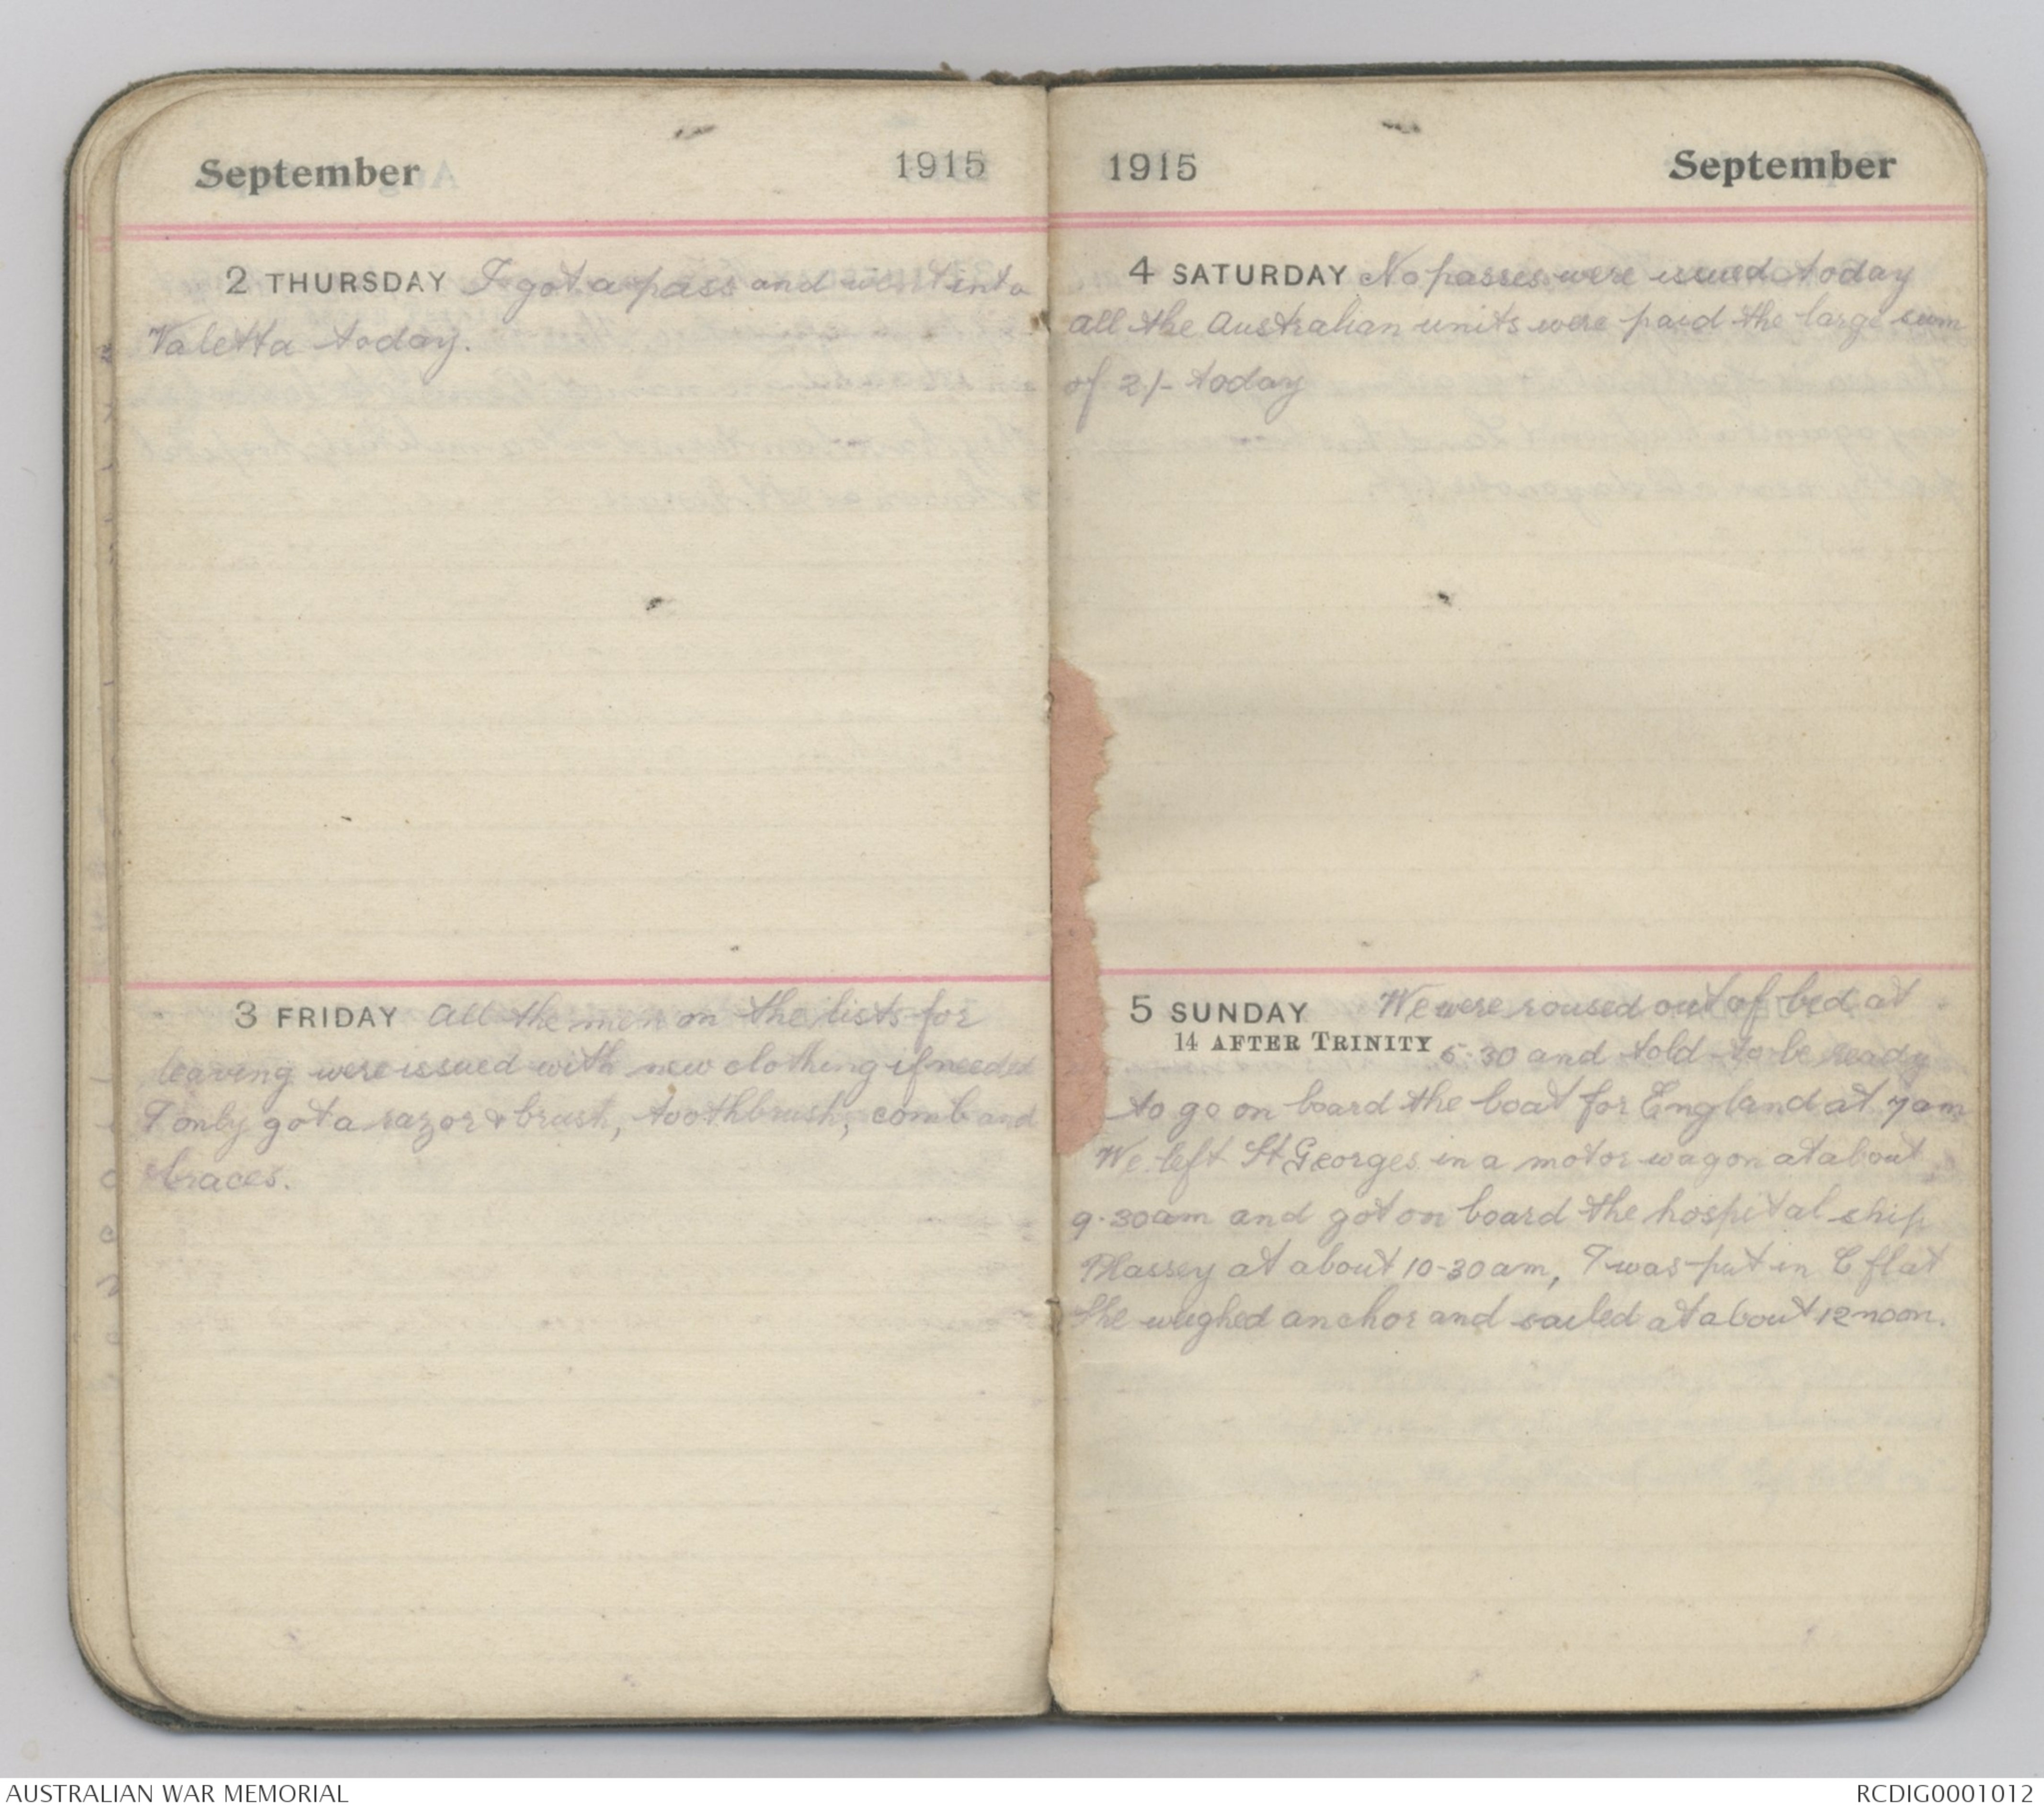 September 1915
2 THURSDAY I got a pass and went into
Valetta today.
3 FRIDAY All the men on the lists for
leaving were issued with new clothing if needed
I only got a razor & brush, toothbrush, comb and
braces.
1915 September
4 SATURDAY No passes were issued today
all the Australian units were paid the large sum
of 2/- today
5 SUNDAY We were roused out of bed at
14 AFTER TRINITY 5.30 and told to be ready
to go on board the boat for England at 7am
We left St Georges in a motor wagon at about
9.30am and got on board the hospital ship
Plassey at about 10-30am, I was put in C flat
She weighed anchor and sailed at about 12 noon.
AUSTRALIAN WAR MEMORIAL
RCDIG0001012